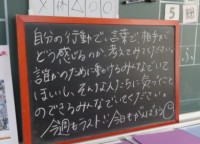 自分の行動で、言葉で、相手が
どう感じるのか、考えてみてください。
誰かのために動けるみんなでいて
ほしいし、そんな人たちに気づくこと
のできるみんなでいてください。
今週もラスト!今日もがんばろう
5